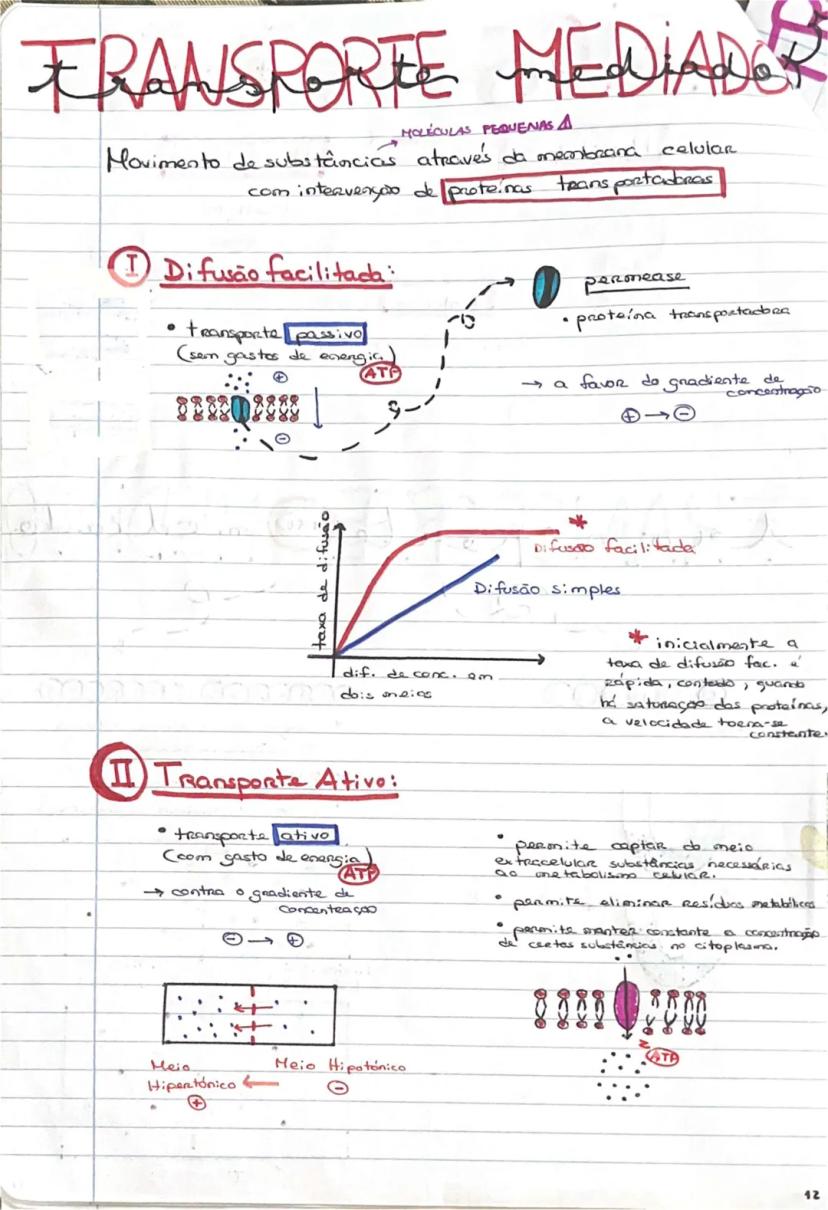 TRANSPORTE MEDIADO
transporte mediado
MOLÉCULAS PEQUENAS ⚠
Movimento de substâncias através da membrana celular
com intervenção de proteínas transportadoras
I Difusão facilitada:
• transporte passivo
(sem gastos de energia)
ATP
+
-
permease
• proteína transportadora
→ a favor do gradiente de
concentração
+ → -
taxa de difusão
*
Difusão facilitada
Difusão simples
dif. de conc. em
dois meios
* inicialmente a
taxa de difusão fac. é
rápida, contudo, quando
há saturação das proteínas,
a velocidade torna-se
constante.
II Transporte Ativo:
• transporte ativo
(com gasto de energia)
ATP
→ contra o gradiente de
concentração
- → +
• permite captar do meio
extracelular substâncias necessárias
ao metabolismo celular.
• permite eliminar resíduos metabólicos
• permite manter constante a concentração
de certas substâncias no citoplasma.
Meio
Hipertónico
+
←
Meio Hipotónico
-
ATP
12